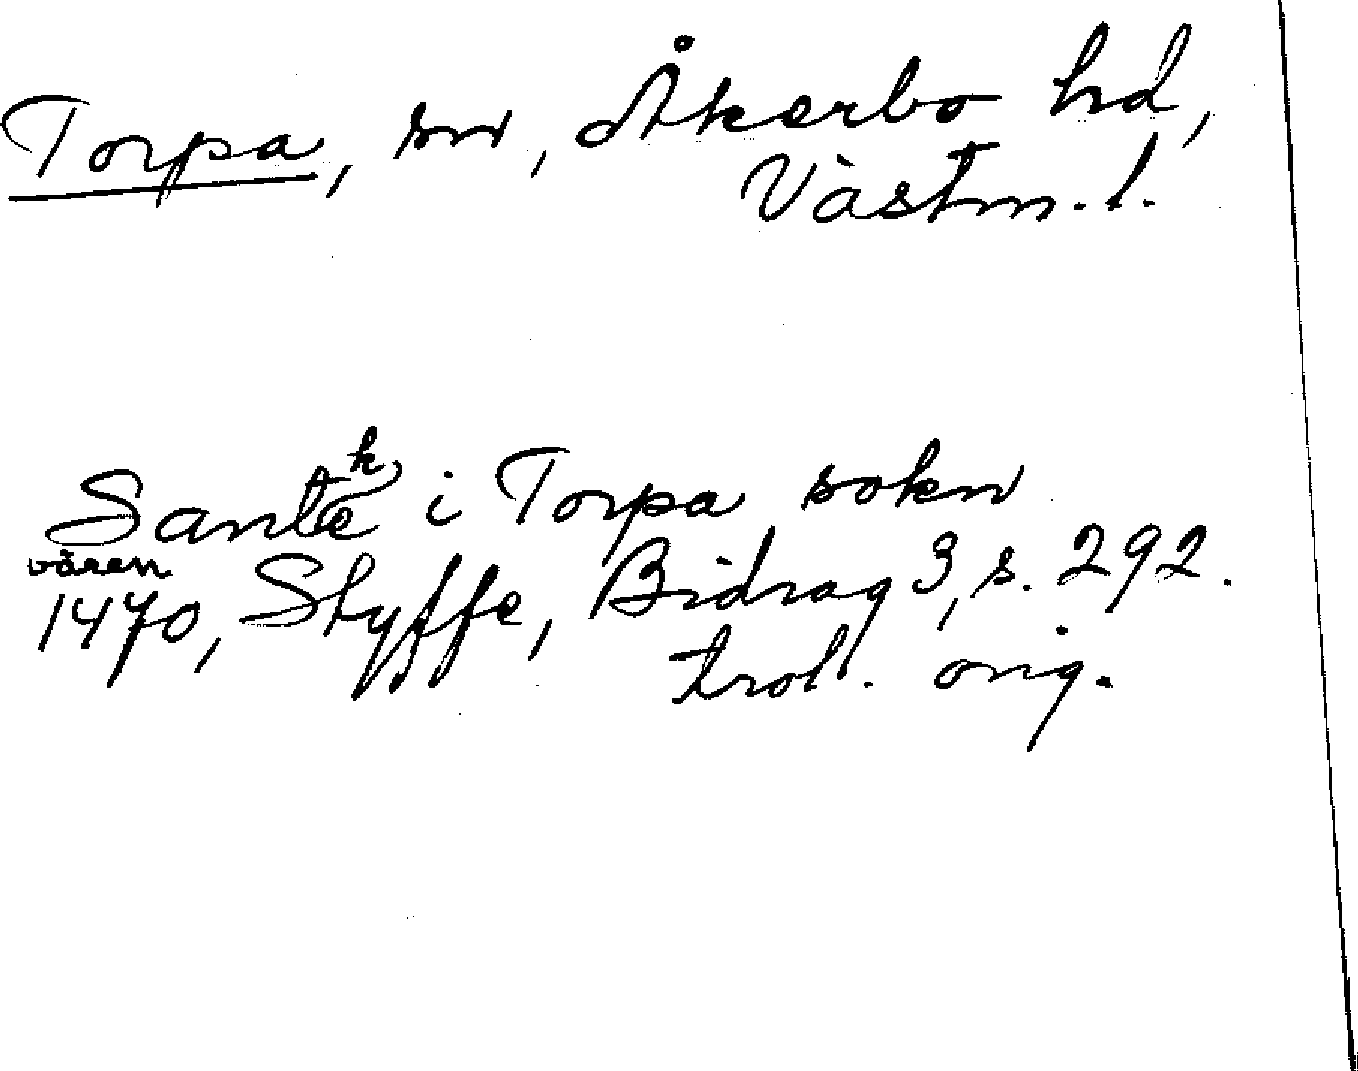 Torpa, sn, Åkerbo hd,
Västm. l.
Sankte i Torpa sokn
våren
1470, Styffe, Bidrag 3, s. 292.
trol. orig.